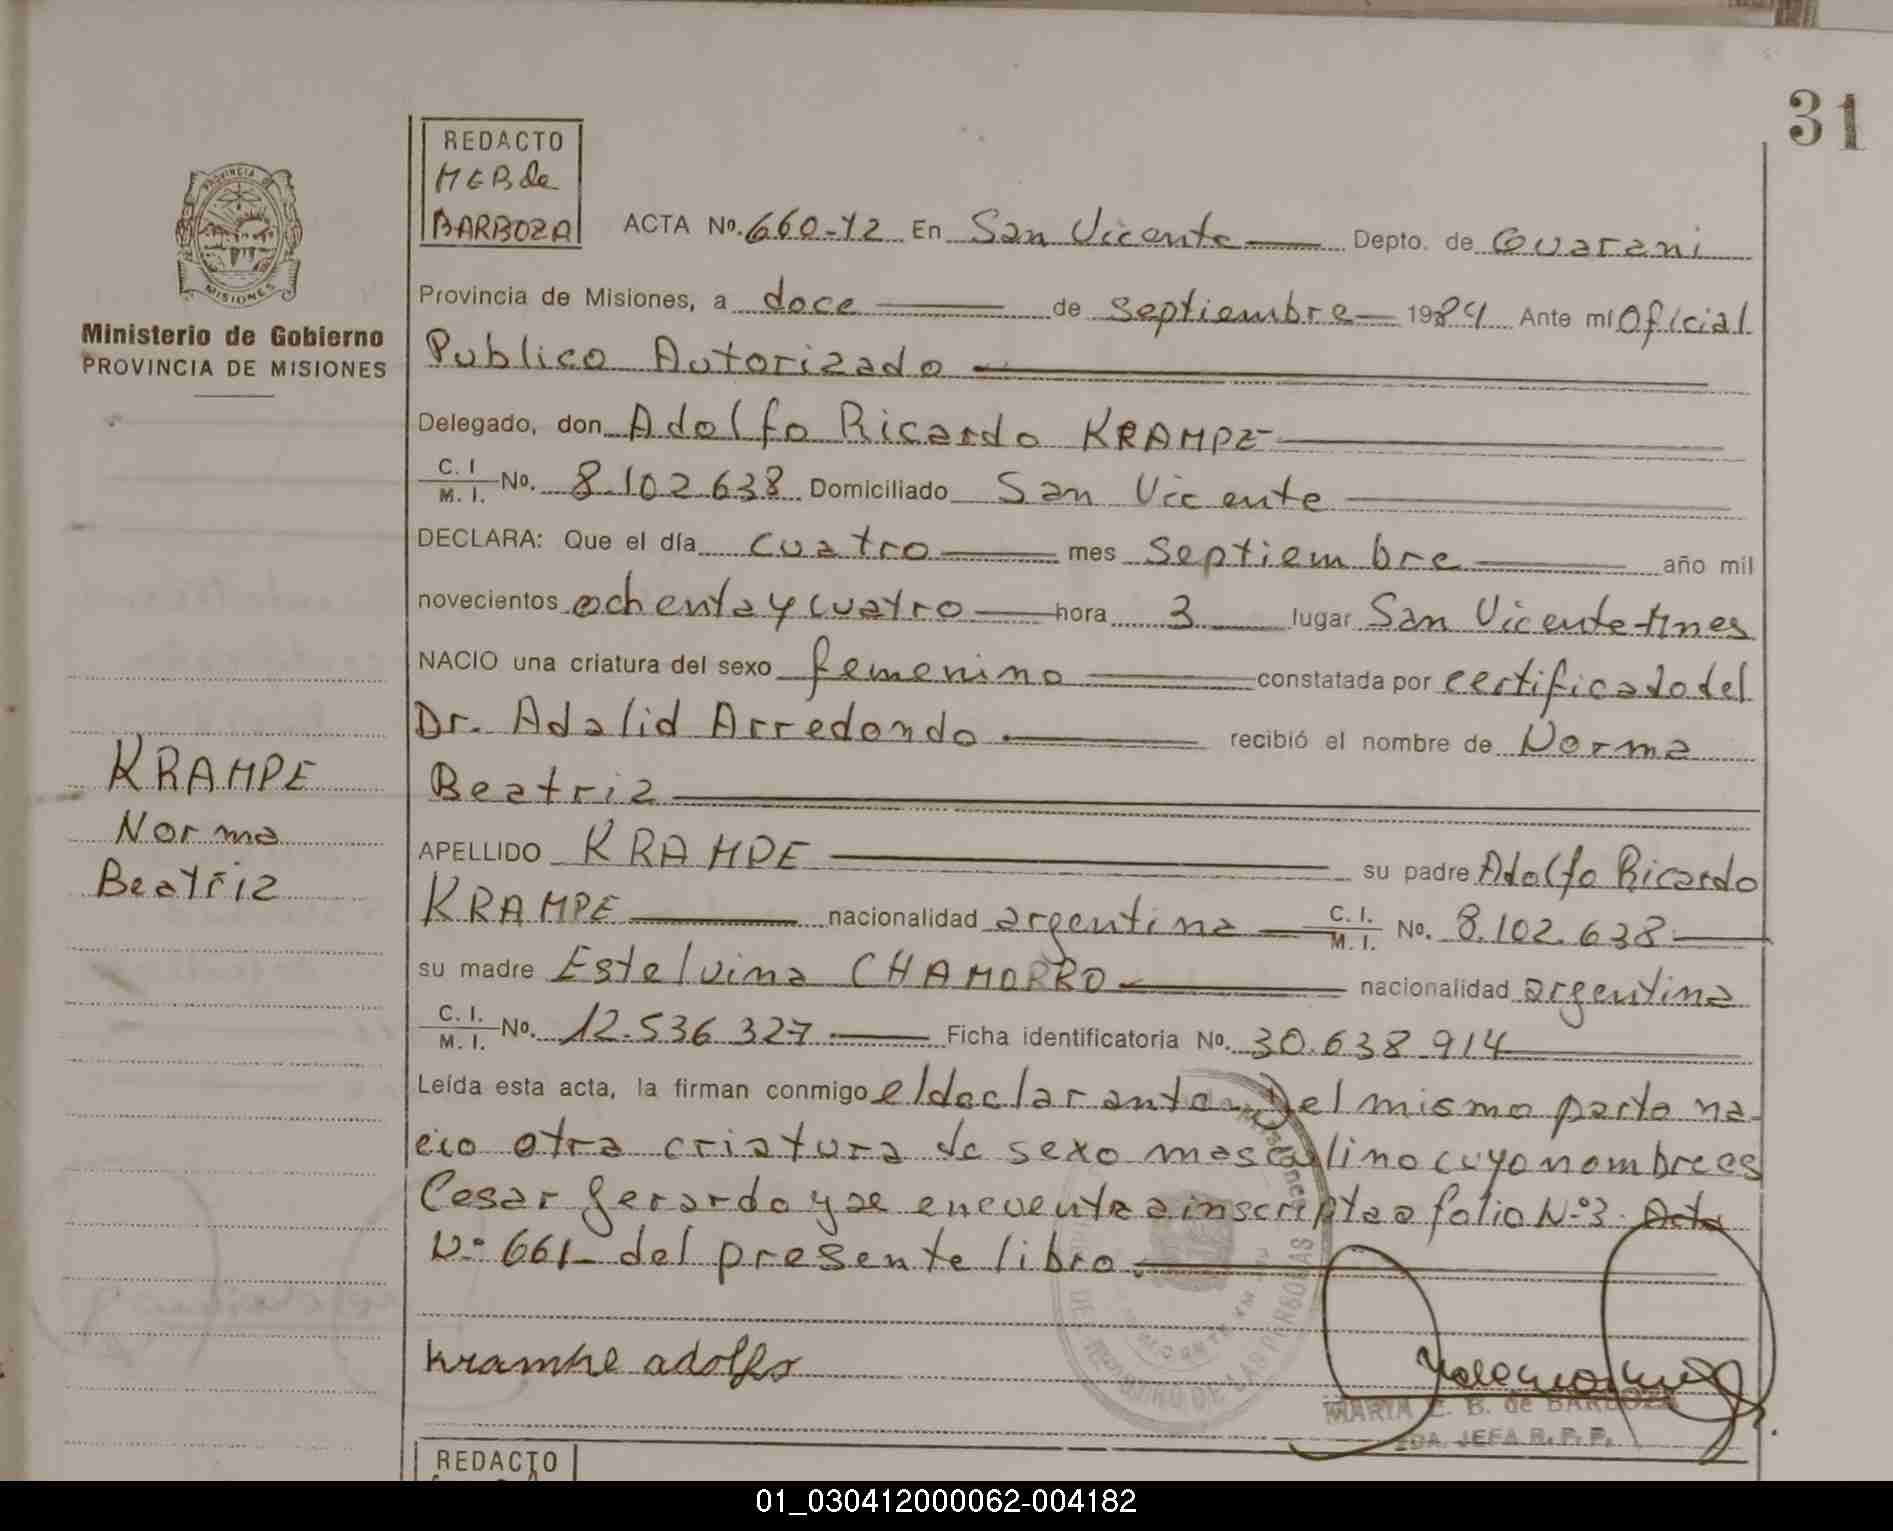 31
REDACTO
MEB de
BARBOZA
PROVINCIA DE
MISIONES
Ministerio de Gobierno
PROVINCIA DE MISIONES
ACTA No. 660-T2 En San Vicente Depto. de Guarani
Provincia de Misiones, a doce de septiembre 1984 Ante mi Oficial
Publico Autorizado
Delegado, don Adolfo Ricardo KRAMPE
C. I. / M. I. No. 8.102.638 Domiciliado San Vicente
DECLARA: Que el día cuatro mes septiembre año mil
novecientos ochenta y cuatro hora 3 lugar San Vicente-Mnes
NACIO una criatura del sexo femenino constatada por certificado del
Dr. Adalid Arredondo recibió el nombre de Norma
Beatriz
KRAMPE
Norma
Beatriz
APELLIDO KRAMPE su padre Adolfo Ricardo
KRAMPE nacionalidad argentina C. I. / M. I. No. 8.102.638
su madre Estelvina CHAMORRO nacionalidad argentina
C. I. / M. I. No. 12.536.327 Ficha identificatoria No. 30.638.914
Leída esta acta, la firman conmigo el declarante. Del mismo parto na-
cio otra criatura de sexo masculino cuyo nombre es
Cesar Gerardo y se encuentra inscripta a folio N°3 Acta
N° 661 del presente libro.
krampe adolfo
MARIA E. B. de BARBOZA
2DA. JEFA R. P. P.
REDACTO
01_030412000062-004182